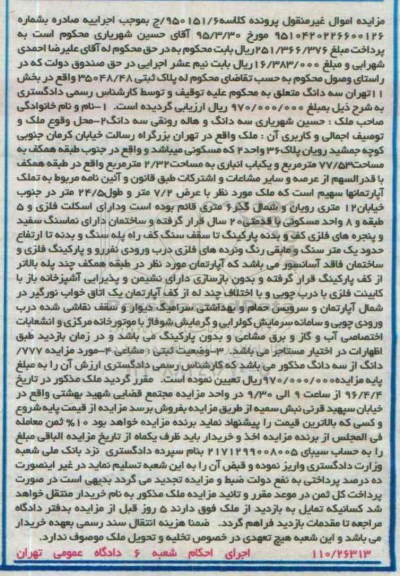 مزایده اموال غیرمنقول پرونده کلاسه ۹۵۰۱۵۱/۶/ج بموجب اجرائیه صادره بشماره
۹۵۱۰۴۲۰۲۲۶۶۰۰۱۲۶ مورخ ۹۵/۳/۳۰ آقای حسین شهریاری محکوم است به
پرداخت مبلغ ۲۵۱/۳۶۶/۳۷۶ ریال بابت محکوم به در حق محکوم له آقای علیرضا احمدی
شهرابی و مبلغ ۱۶/۳۸۳/۰۰۰ ریال بابت نیم عشر اجرایی در حق صندوق دولت که در
راستای وصول محکوم به حسب تقاضای محکوم له پلاک ثبتی ۳۵۰۴۸/۴۸ واقع در بخش
۱۱ تهران سه دانگ متعلق به محکوم علیه توقیف و توسط کارشناس رسمی دادگستری
به شرح ذیل بمبلغ ۹۷۰/۰۰۰/۰۰۰ ریال ارزیابی گردیده است. ۱-نام و نام خانوادگی
صاحب ملک : حسین شهریاری سه دانگ و هاله رونقی سه دانگ ۲-محل وقوع ملک و
توصیف اجمالی و کاربری آن : ملک واقع در تهران بزرگراه رسالت خیابان کرمان جنوبی
کوچه جمشید رویان پلاک ۳۶ واحد ۲ که مسکونی میباشد و واقع در جنوب طبقه همکف به
مساحت ۷۷/۵۳ مترمربع و یکباب انباری به مساحت ۲/۳۲ مترمربع واقع در طبقه همکف
با قدرالسهم از عرصه و سایر مشاعات و اشتراکات طبق قانون و آئین نامه مربوط به تملک
آپارتمانها سهیم است که ملک مورد نظر با عرض ۷/۲ متر و طول ۲۴/۵ متر در جنوب
خیابان ۱۲ متری رویان و شمال گذر ۶ متری قائم بوده است و دارای اسکلت فلزی و ۵
طبقه و ۸ واحد مسکونی با قدمتی ۲۰ سال قرار گرفته و ساختمان دارای نماسنگ سفید
و پنجره های فلزی کف و بدنه پارکینگ تا سقف سنگ کف راه پله سنگ و بدنه تا ارتفاع
حدود یک متر سنگ و مابقی رنگ و نرده های فلزی درب ورودی نفررو و پارکینگ فلزی و
ساختمان فاقد آسانسور می باشد که آپارتمان مورد نظر در طبقه همکف چند پله بالاتر
از کف پارکینگ قرار گرفته و بدون بازسازی دارای نشیمن و پذیرایی آشپزخانه باز با
کابینت فلزی با درب چوبی و با اختلاف چند له از کف آپارتمان یک اتاق خواب نورگیر در
شمال آپارتمان و سرویس حمام و بهداشتی سرامیک دیوار و سقف نقاشی شده درب
ورودی چوبی و سامانه سرمایش کولرابی و گرمایش شوفاژ با موتورخانه مرکزی و انشعابات
اختصاصی آب و گاز و برق مشاعی و بدون پارکینگ می باشد و در زمان بازدید طبق
اظهارات در اختیار مستاجر می باشد. ۳-وضعیت ثبتی : مشاعی ۴-مورد مزایده ۷۷۷/
دانگ از سه دانگ مذکور می باشد که کارشناس رسمی دادگستری ارزش آن را به مبلغ
پایه مزایده ۹۷۰/۰۰۰/۰۰۰ ریال تعیین نموده است. مقرر گردید ملک مذکور در تاریخ
۹۶/۴/۴ از ساعت ۹ الی ۹/۳۰ در واحد مزایده مجتمع قضایی شهید بهشتی واقع در
خیابان سپهبد قرنی نبش سمیه از طریق مزایده بفروش برسد مزایده از قیمت پایه شروع
و کسی که بالاترین قیمت را پیشنهاد نماید برنده مزایده خواهد بود ۱۰% ثمن معامله
فی المجلس از برنده مزایده اخذ و خریدار باید ظرف یکماه از تاریخ مزایده الباقی مبلغ
را به حساب سیبای ۲۱۷۱۲۹۹۰۰۸۰۰۵ بنام سپرده دادگستری نزد بانک ملی شعبه
وزارت دادگستری واریز نموده و قبض آن را به این شعبه تسلیم نماید در غیر اینصورت
ده درصد پرداختی به نفع دولت ضبط و مزایده تجدید می گردد بدیهی است در صورت
پرداخت کل ثمن در موعد مقرر و تائید مزایده ملک مذکور به نام خریدار منتقل خواهد
شد کسانیکه تمایل به بازدید از ملک فوق دارند ۵ روز قبل از مزایده بدفتر دادگاه
مراجعه تا مقدمات بازدید فراهم گردد. ضمنا هزینه انتقال سند رسمی بعهده خریدار
می باشد و این شعبه هیچ تعهدی در خصوص تخلیه و تحویل ملک موصوف ندارد.
۱۱۰/۲۶۳۱۳ اجرای احکام شعبه ۶ دادگاه عمومی تهران